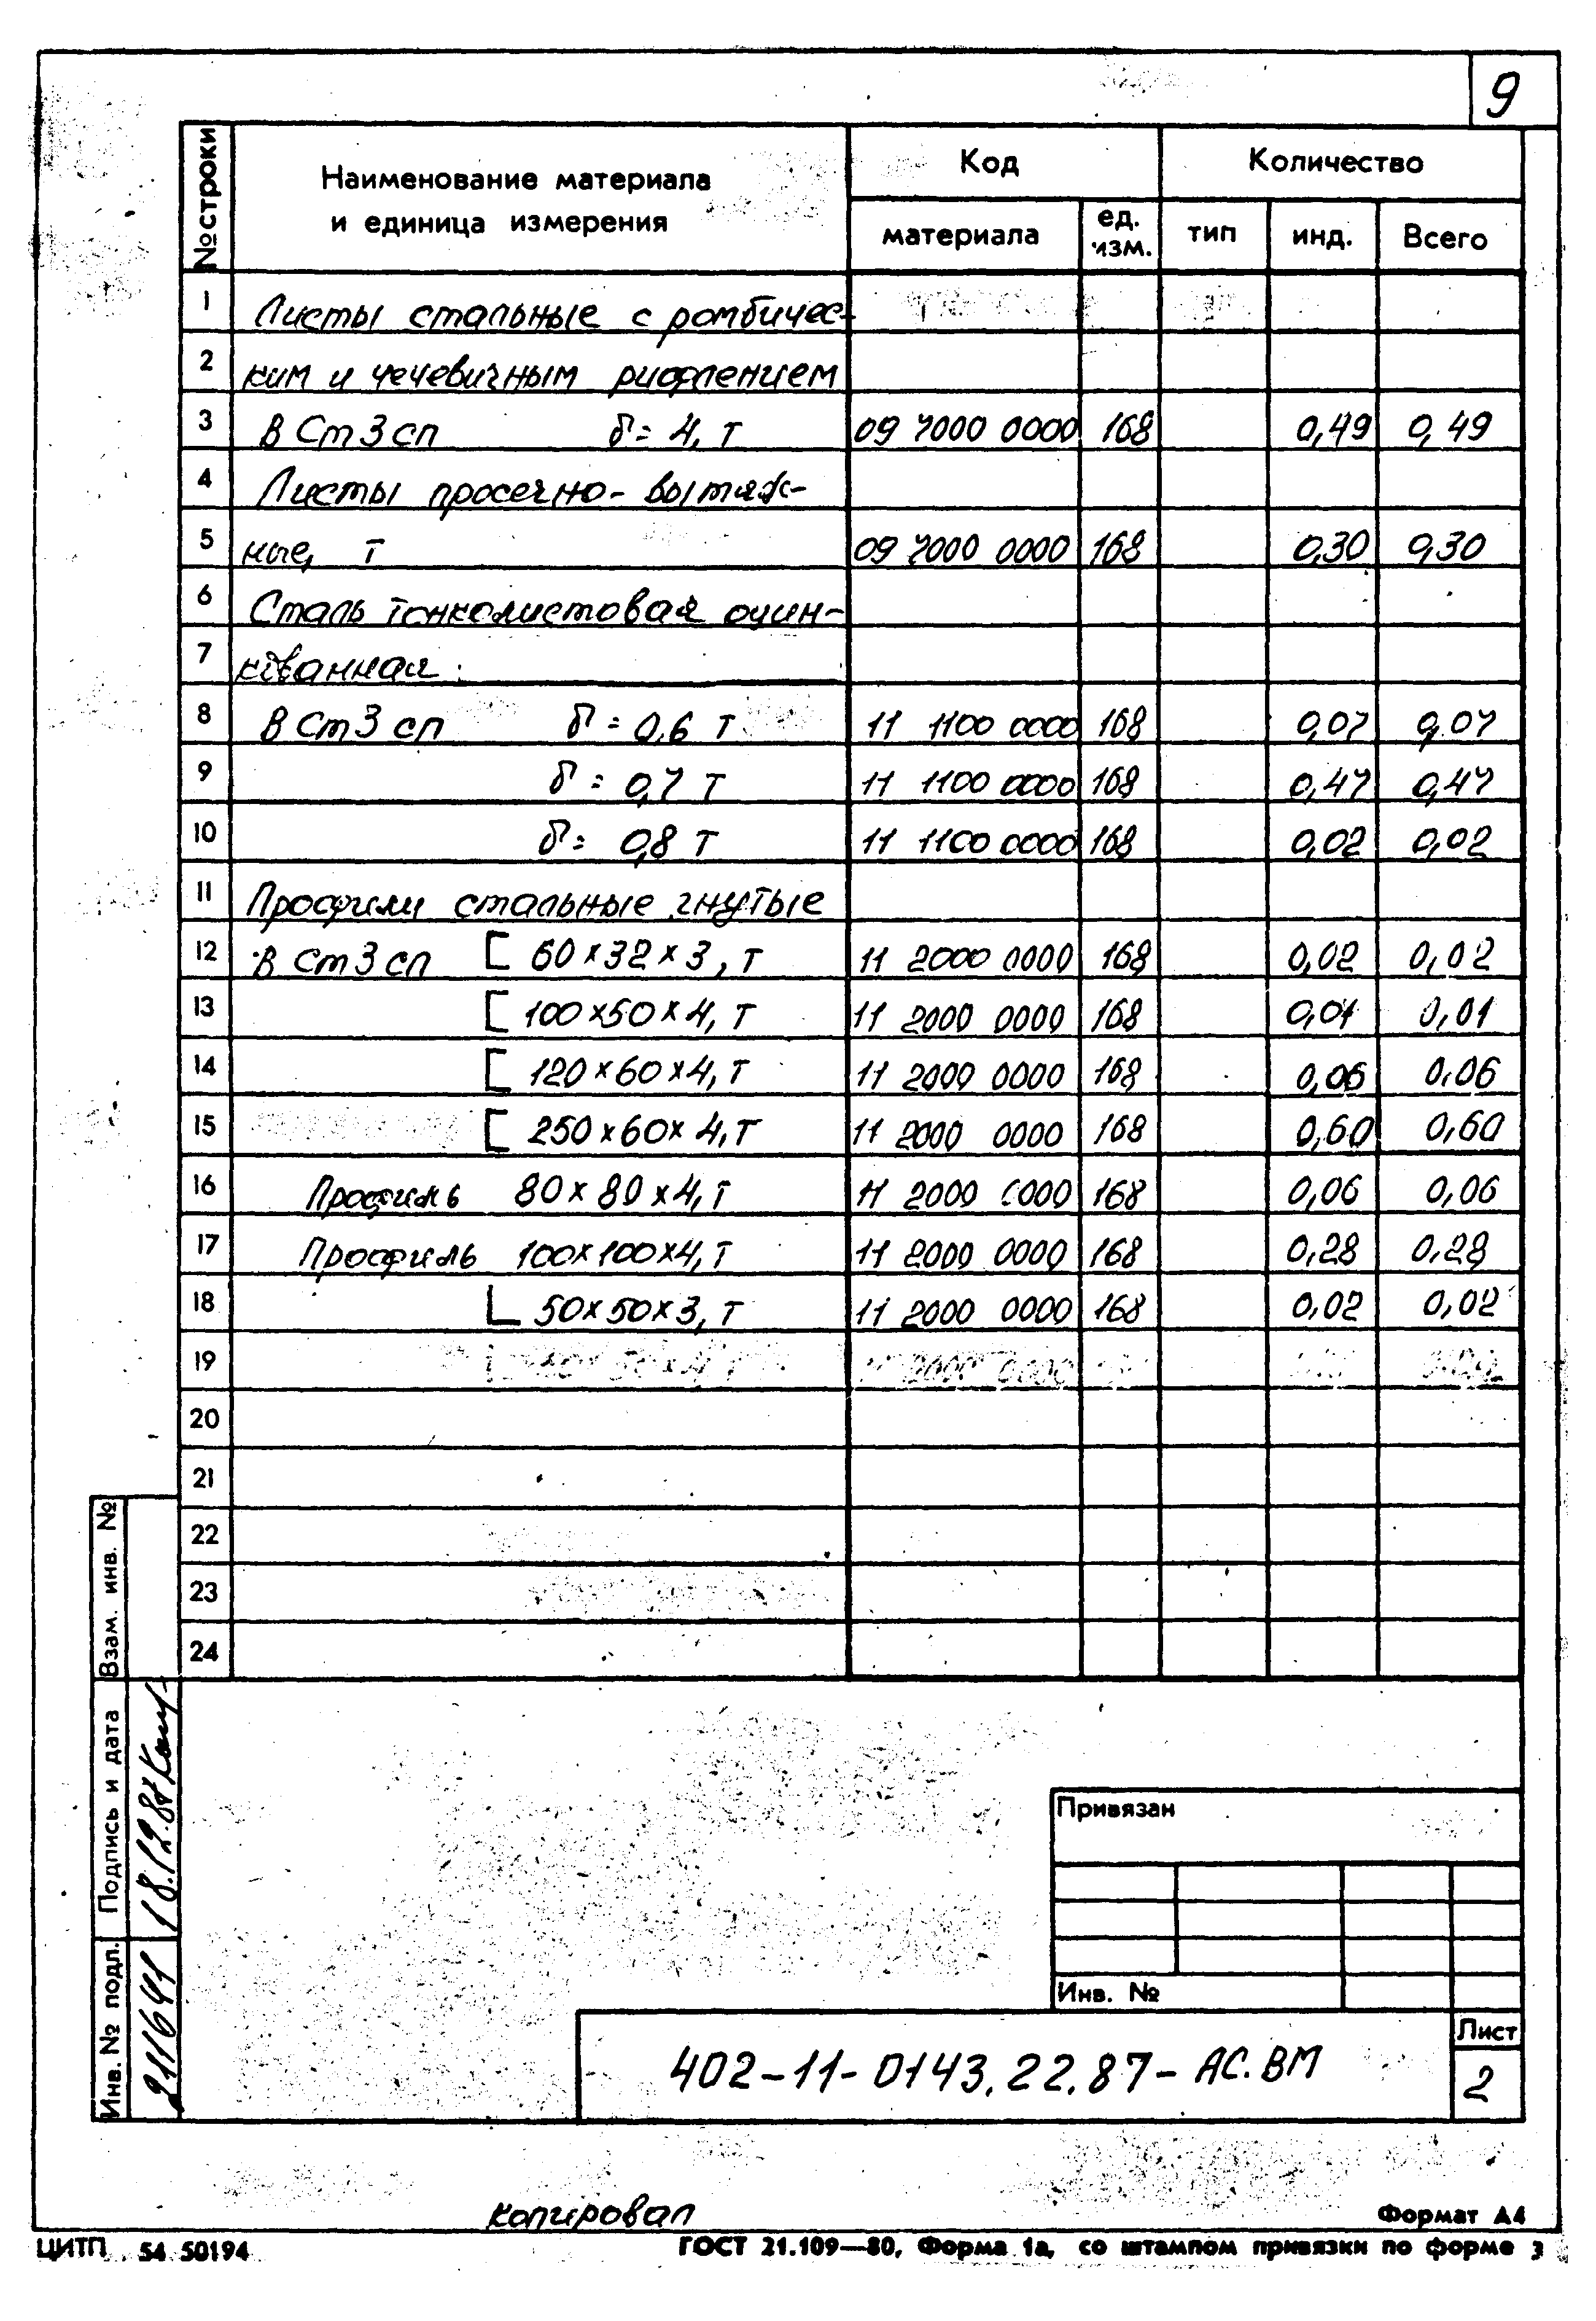 9
№ строки
Наименование материала
и единица измерения
Код
Количество
материала
ед.
изм.
тип
инд.
Всего
1 Листы стальные с ромбичес-
2 ким и чечевичным рифлением
3 В Ст 3 сп δ= 4, т 09 7000 0000 168 0,49 0,49
4 Листы просечно-вытяж-
5 ные, т 09 7000 0000 168 0,30 0,30
6 Сталь тонколистовая оцин-
7 кованная:
8 В Ст 3 сп δ = 0,6 т 11 1100 0000 168 0,07 0,07
9 δ = 0,7 т 11 1100 0000 168 0,47 0,47
10 δ = 0,8 т 11 1100 0000 168 0,02 0,02
11 Профили стальные гнутые
12 В Ст 3 сп [ 60×32×3, т 11 2000 0000 168 0,02 0,02
13 [ 100×50×4, т 11 2000 0000 168 0,01 0,01
14 [ 120×60×4, т 11 2000 0000 168 0,06 0,06
15 [ 250×60×4, т 11 2000 0000 168 0,60 0,60
16 Профиль 80×80×4, т 11 2000 0000 168 0,06 0,06
17 Профиль 100×100×4, т 11 2000 0000 168 0,28 0,28
18 L 50×50×3, т 11 2000 0000 168 0,02 0,02
19
20
21
22
23
24
Взам. инв. №
Подпись и дата
18.12.87
Инв. № подл.
Привязан
Инв. №
402-11-0143.22.87-АС.ВМ
Лист
2
Копировал
Формат А4
ЦИТП 54 50194
ГОСТ 21.109—80, Форма 1а, со штампом привязки по форме 3